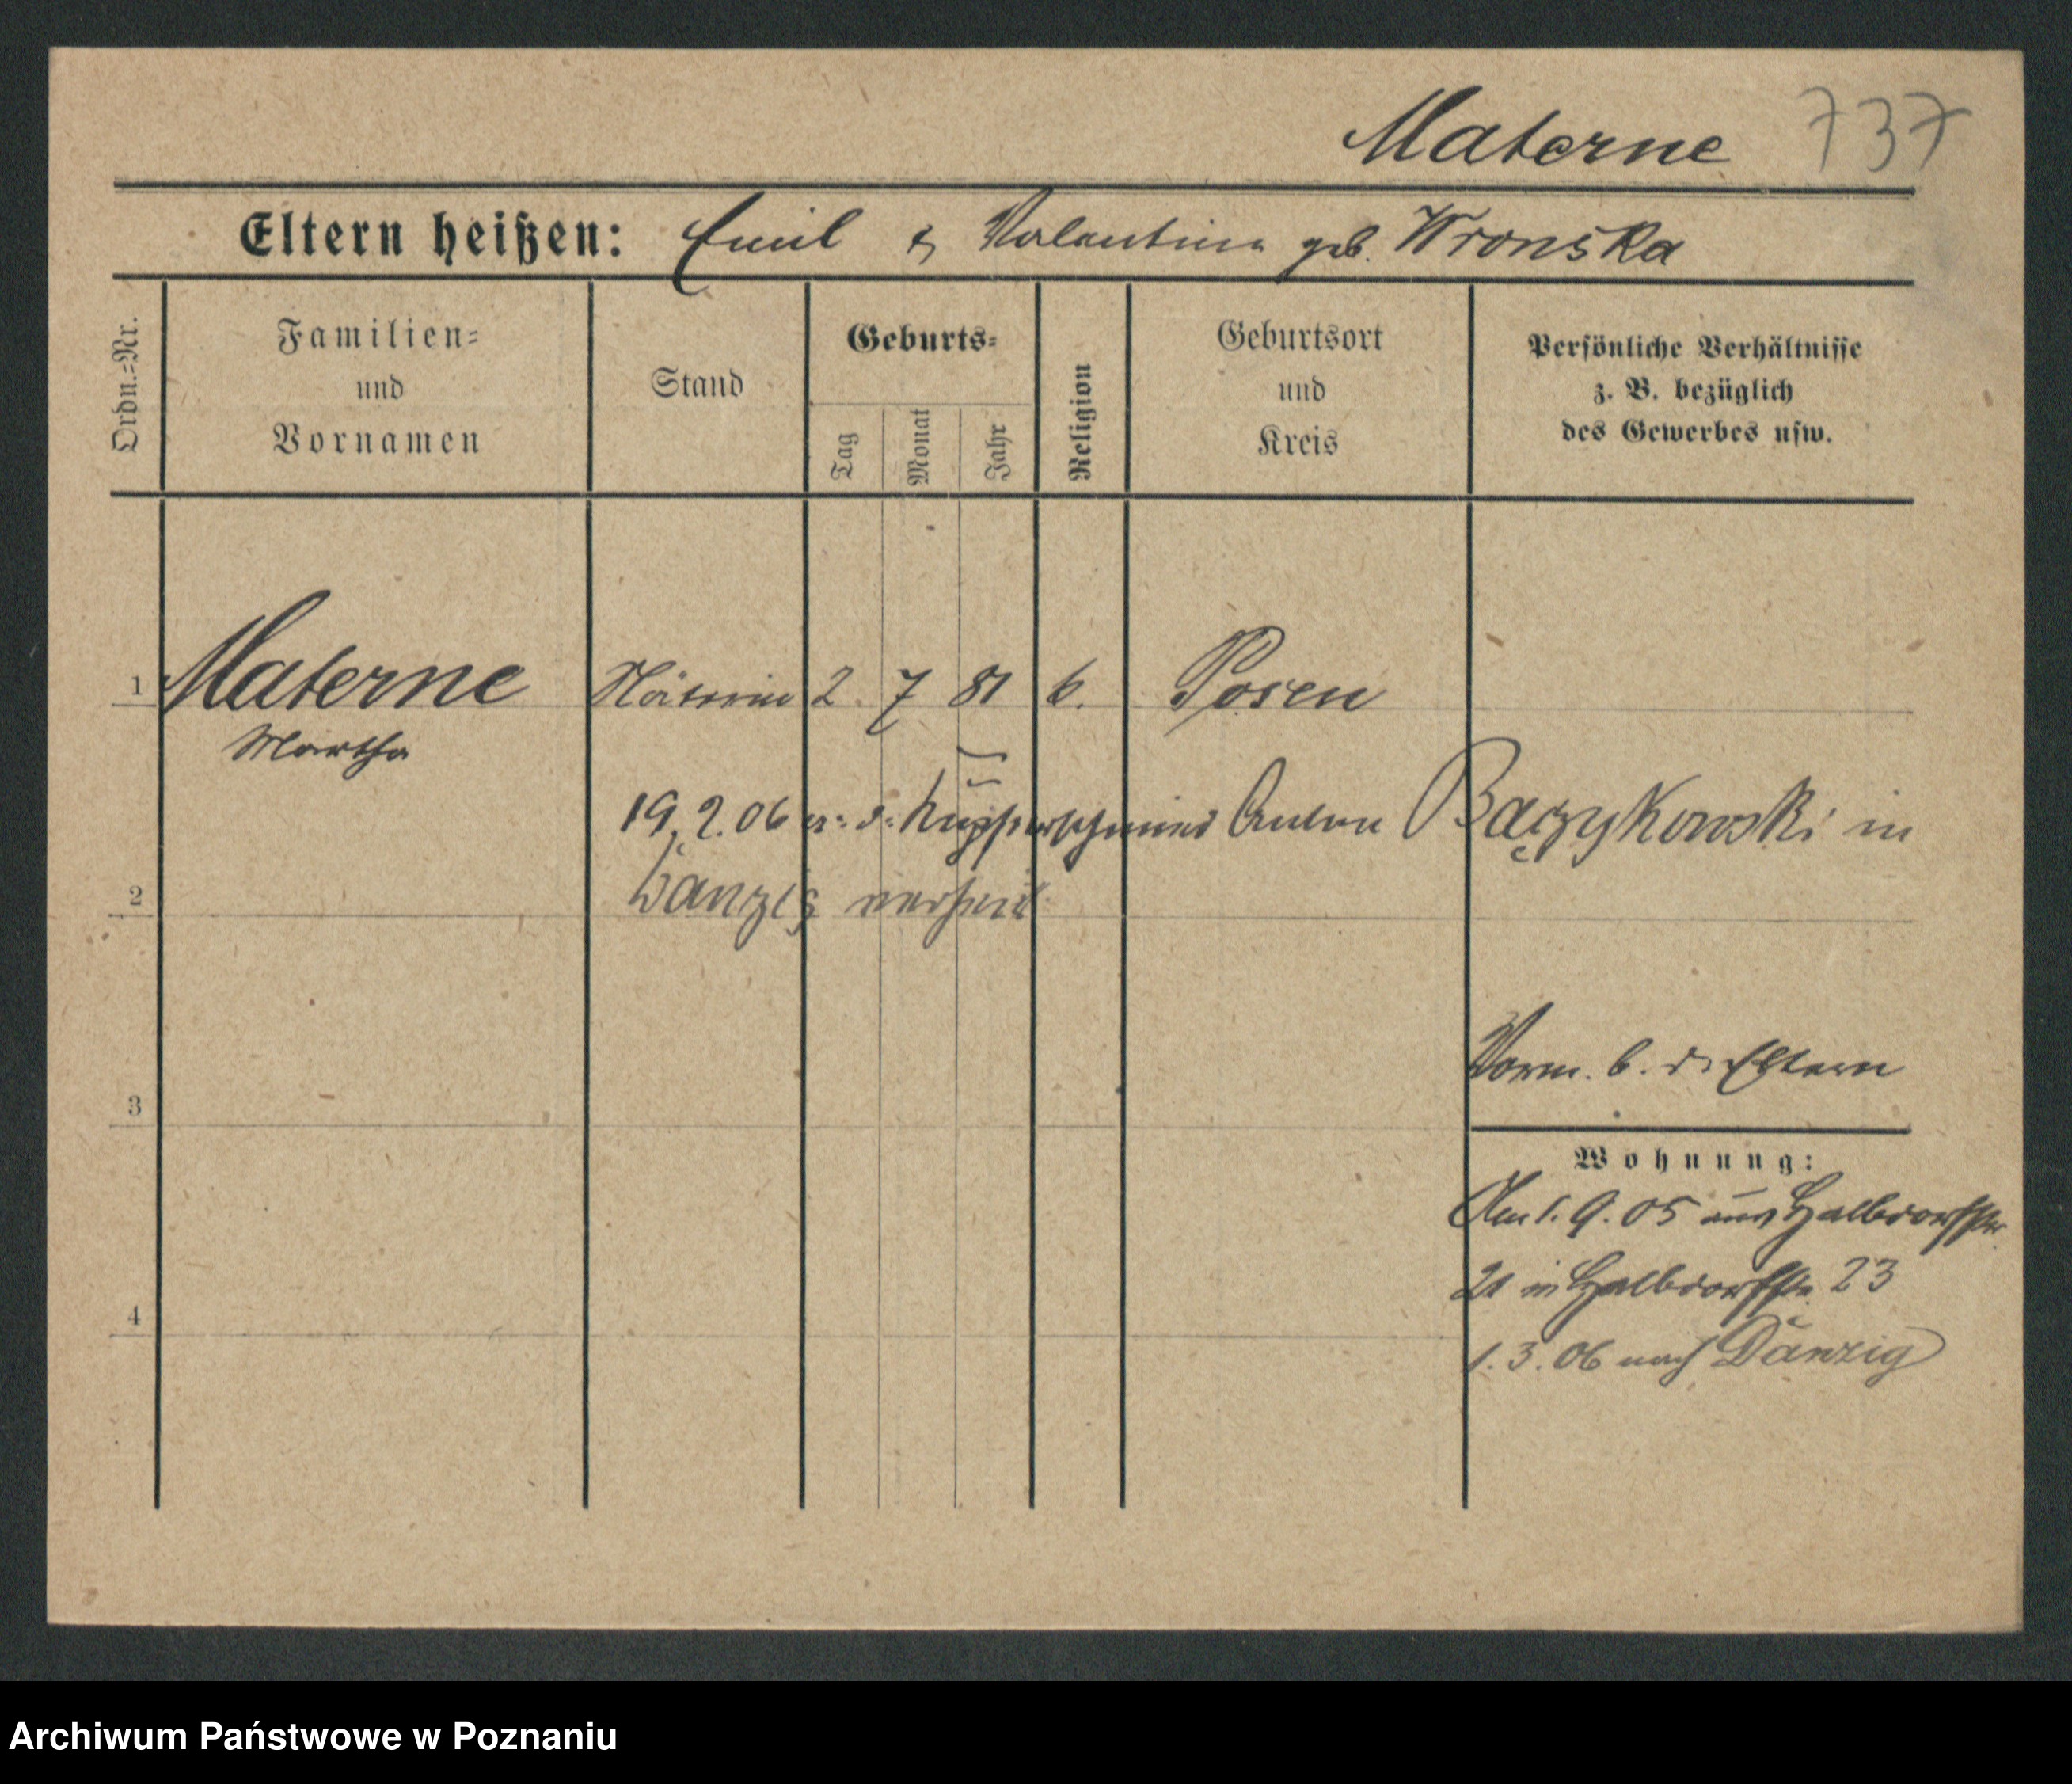 Materne 737
Eltern heißen: Emil & Valentina geb. Wronska
Ordn.-Nr.
Familien-
und
Vornamen
Stand
Geburts-
Tag
Monat
Jahr
Religion
Geburtsort
und
Kreis
Persönliche Verhältnisse
z. B. bezüglich
des Gewerbes usw.
1 Materne Näterin 2 7 81 k. Posen
Martha
19.2.06 m. d. Kupferschmied Anton Bączykowski in
2 Danzig verheir
Vorm. b. d. Eltern
3
Wohnung:
Am 1.9.05 aus Halbdorfstr.
21 in Halbdorfstr. 23
4
1.3.06 nach Danzig
Archiwum Państwowe w Poznaniu